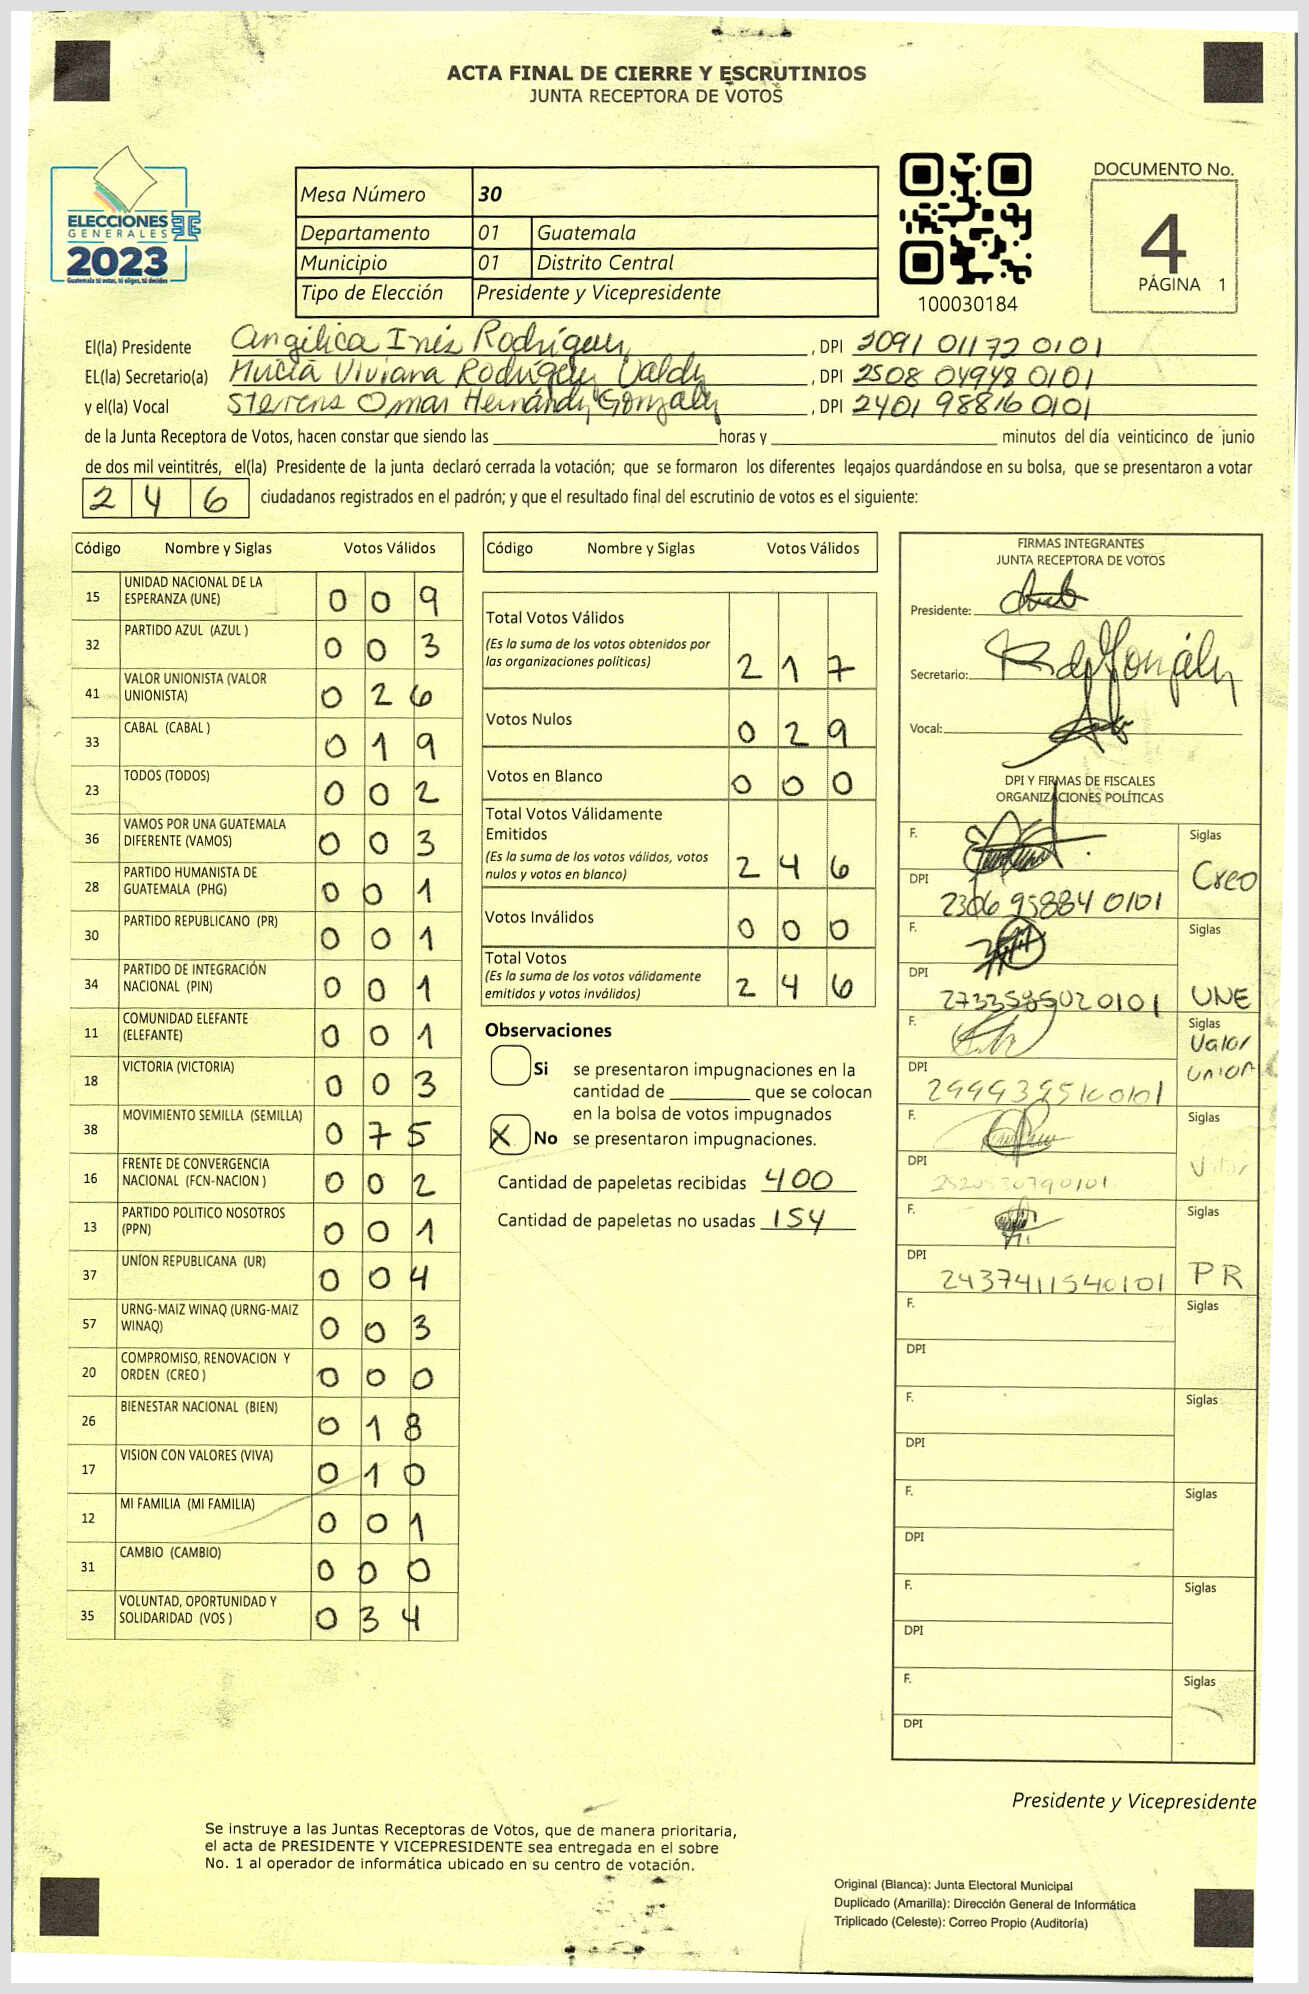 ACTA FINAL DE CIERRE Y ESCRUTINIOS
JUNTA RECEPTORA DE VOTOS
ELECCIONES
GENERALES
2023
Guatemala tú votas, tú eliges, tú decides
Mesa Número 30
Departamento 01 Guatemala
Municipio 01 Distrito Central
Tipo de Elección Presidente y Vicepresidente
100030184
DOCUMENTO No.
4
PÁGINA 1
El(la) Presidente Angélica Inés Rodríguez, DPI 2091 01172 0101
EL(la) Secretario(a) Viviana Rodríguez Valdez, DPI 2508 04948 0101
y el(la) Vocal Stevens Omar Hernández Gonzalez, DPI 2401 98816 0101
de la Junta Receptora de Votos, hacen constar que siendo las horas y minutos del día veinticinco de junio
de dos mil veintitrés, el(la) Presidente de la junta declaró cerrada la votación; que se formaron los diferentes legajos guardándose en su bolsa, que se presentaron a votar
246 ciudadanos registrados en el padrón; y que el resultado final del escrutinio de votos es el siguiente:
Código Nombre y Siglas Votos Válidos
15 UNIDAD NACIONAL DE LA ESPERANZA (UNE) 009
32 PARTIDO AZUL (AZUL ) 003
41 VALOR UNIONISTA (VALOR UNIONISTA) 026
33 CABAL (CABAL ) 019
23 TODOS (TODOS) 002
36 VAMOS POR UNA GUATEMALA DIFERENTE (VAMOS) 003
28 PARTIDO HUMANISTA DE GUATEMALA (PHG) 001
30 PARTIDO REPUBLICANO (PR) 001
34 PARTIDO DE INTEGRACIÓN NACIONAL (PIN) 001
11 COMUNIDAD ELEFANTE (ELEFANTE) 001
18 VICTORIA (VICTORIA) 003
38 MOVIMIENTO SEMILLA (SEMILLA) 075
16 FRENTE DE CONVERGENCIA NACIONAL (FCN-NACION ) 002
13 PARTIDO POLITICO NOSOTROS (PPN) 001
37 UNÍON REPUBLICANA (UR) 004
57 URNG-MAIZ WINAQ (URNG-MAIZ WINAQ) 003
20 COMPROMISO, RENOVACION Y ORDEN (CREO ) 000
26 BIENESTAR NACIONAL (BIEN) 018
17 VISION CON VALORES (VIVA) 010
12 MI FAMILIA (MI FAMILIA) 001
31 CAMBIO (CAMBIO) 000
35 VOLUNTAD, OPORTUNIDAD Y SOLIDARIDAD (VOS ) 034
Código Nombre y Siglas Votos Válidos
Total Votos Válidos
(Es la suma de los votos obtenidos por
las organizaciones políticas) 217
Votos Nulos 029
Votos en Blanco 000
Total Votos Válidamente
Emitidos
(Es la suma de los votos válidos, votos
nulos y votos en blanco) 246
Votos Inválidos 000
Total Votos
(Es la suma de los votos válidamente
emitidos y votos inválidos) 246
Observaciones
Si se presentaron impugnaciones en la
cantidad de que se colocan
en la bolsa de votos impugnados
X No se presentaron impugnaciones.
Cantidad de papeletas recibidas 400
Cantidad de papeletas no usadas 154
FIRMAS INTEGRANTES
JUNTA RECEPTORA DE VOTOS
Presidente:
Secretario:
Vocal:
DPI Y FIRMAS DE FISCALES
ORGANIZACIONES POLÍTICAS
F. Siglas
DPI 2306 95884 0101 Creo
F. Siglas
DPI 2733585020101 UNE
F. Siglas
Valor
DPI union
F. Siglas
DPI Valor
F. Siglas
DPI 2437411540101 PR
F. Siglas
DPI
F. Siglas
DPI
F. Siglas
DPI
F. Siglas
DPI
F. Siglas
DPI
Presidente y Vicepresidente
Se instruye a las Juntas Receptoras de Votos, que de manera prioritaria,
el acta de PRESIDENTE Y VICEPRESIDENTE sea entregada en el sobre
No. 1 al operador de informática ubicado en su centro de votación.
Original (Blanca): Junta Electoral Municipal
Duplicado (Amarilla): Dirección General de Informática
Triplicado (Celeste): Correo Propio (Auditoría)